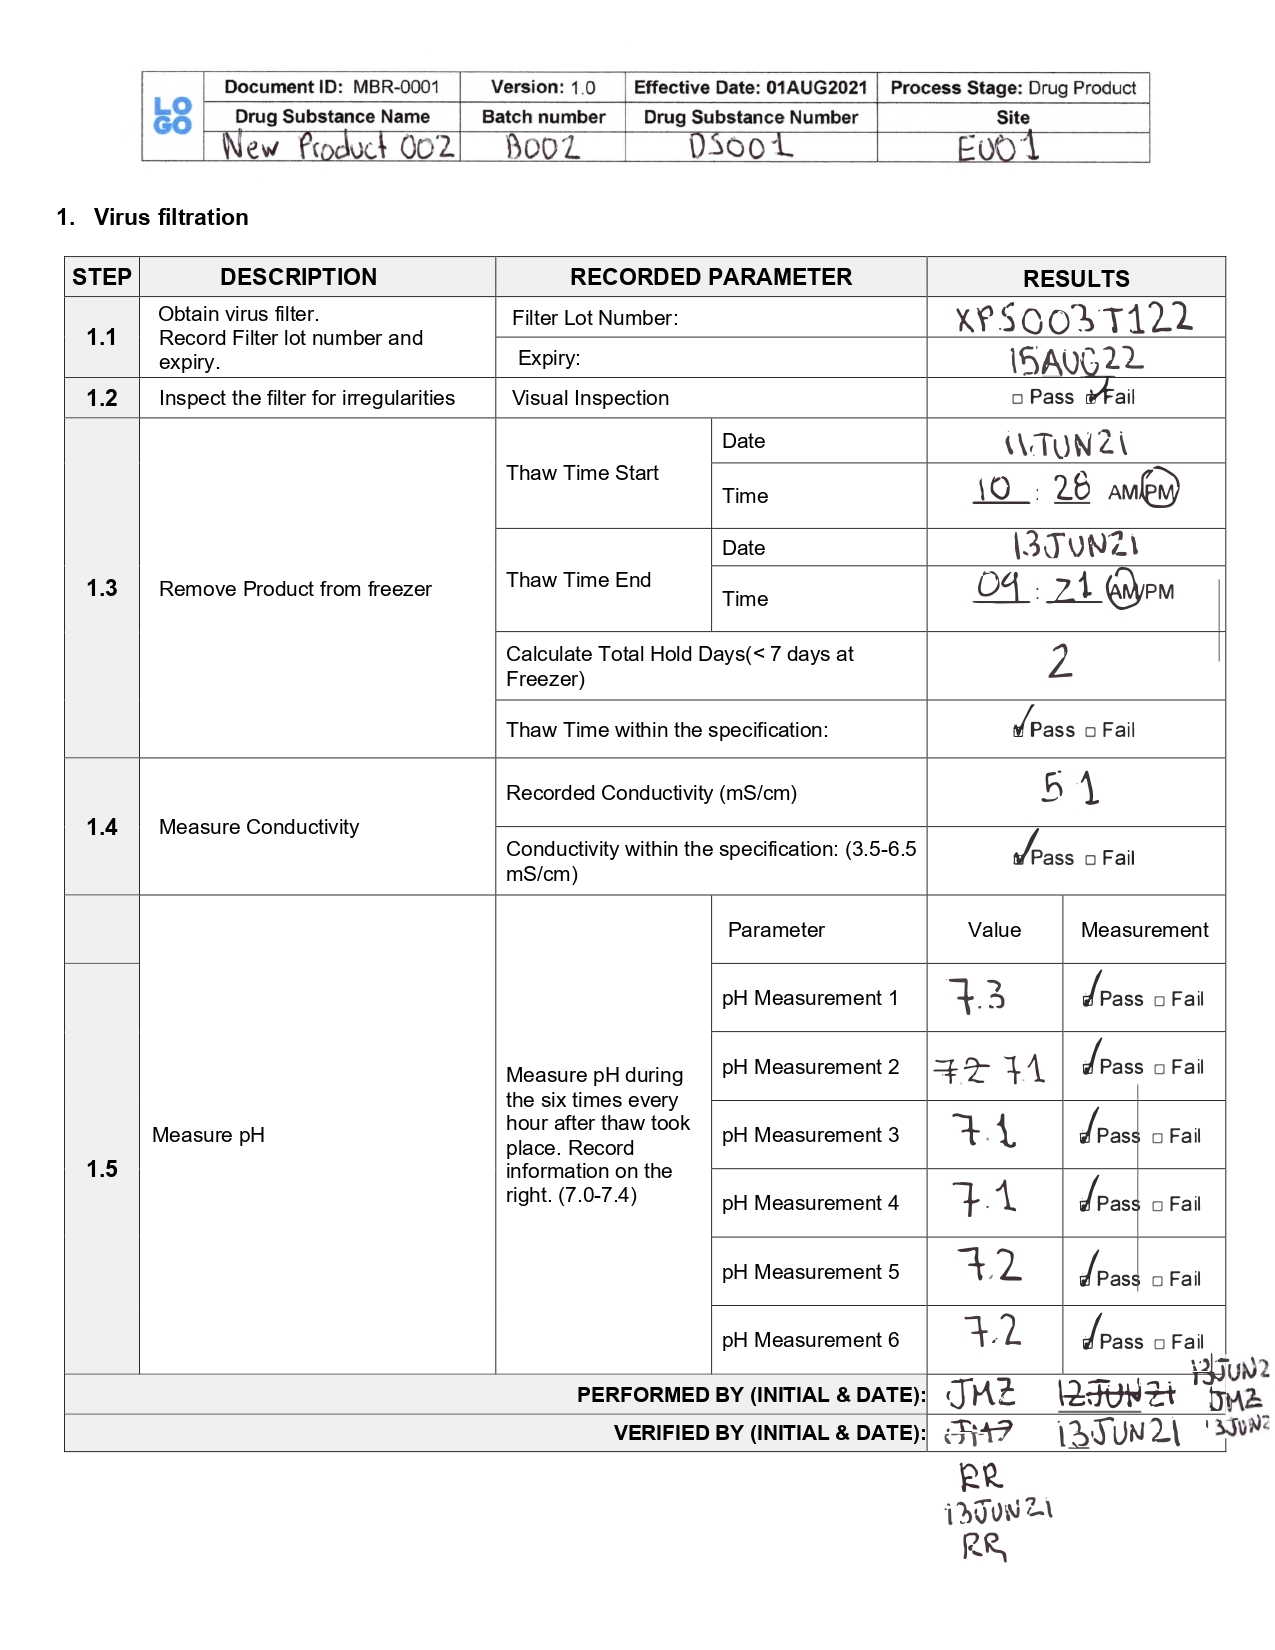 LO
GO
Document ID: MBR-0001 Version: 1.0 Effective Date: 01AUG2021 Process Stage: Drug Product
Drug Substance Name Batch number Drug Substance Number Site
New Product 002 B002 DS001 EU01
1. Virus filtration
STEP DESCRIPTION RECORDED PARAMETER RESULTS
1.1
Obtain virus filter.
Record Filter lot number and
expiry.
Filter Lot Number: XPS003T122
Expiry: 15AUG22
1.2 Inspect the filter for irregularities Visual Inspection Pass Fail
1.3 Remove Product from freezer
Thaw Time Start
Date 11JUN21
Time 10 : 28 AM/PM
Thaw Time End
Date 13JUN21
Time 09 : 21 AM/PM
Calculate Total Hold Days(< 7 days at
Freezer)
2
Thaw Time within the specification: Pass Fail
1.4 Measure Conductivity
Recorded Conductivity (mS/cm) 5 1
Conductivity within the specification: (3.5-6.5
mS/cm)
Pass Fail
1.5 Measure pH
Measure pH during
the six times every
hour after thaw took
place. Record
information on the
right. (7.0-7.4)
Parameter Value Measurement
pH Measurement 1 7.3 Pass Fail
pH Measurement 2 7.2 7.1 Pass Fail
pH Measurement 3 7.1 Pass Fail
pH Measurement 4 7.1 Pass Fail
pH Measurement 5 7.2 Pass Fail
pH Measurement 6 7.2 Pass Fail
PERFORMED BY (INITIAL & DATE): JMZ 12JUN21
13JUN2
JMZ
13JUN2
VERIFIED BY (INITIAL & DATE): 13JUN21
RR
13JUN21
RR